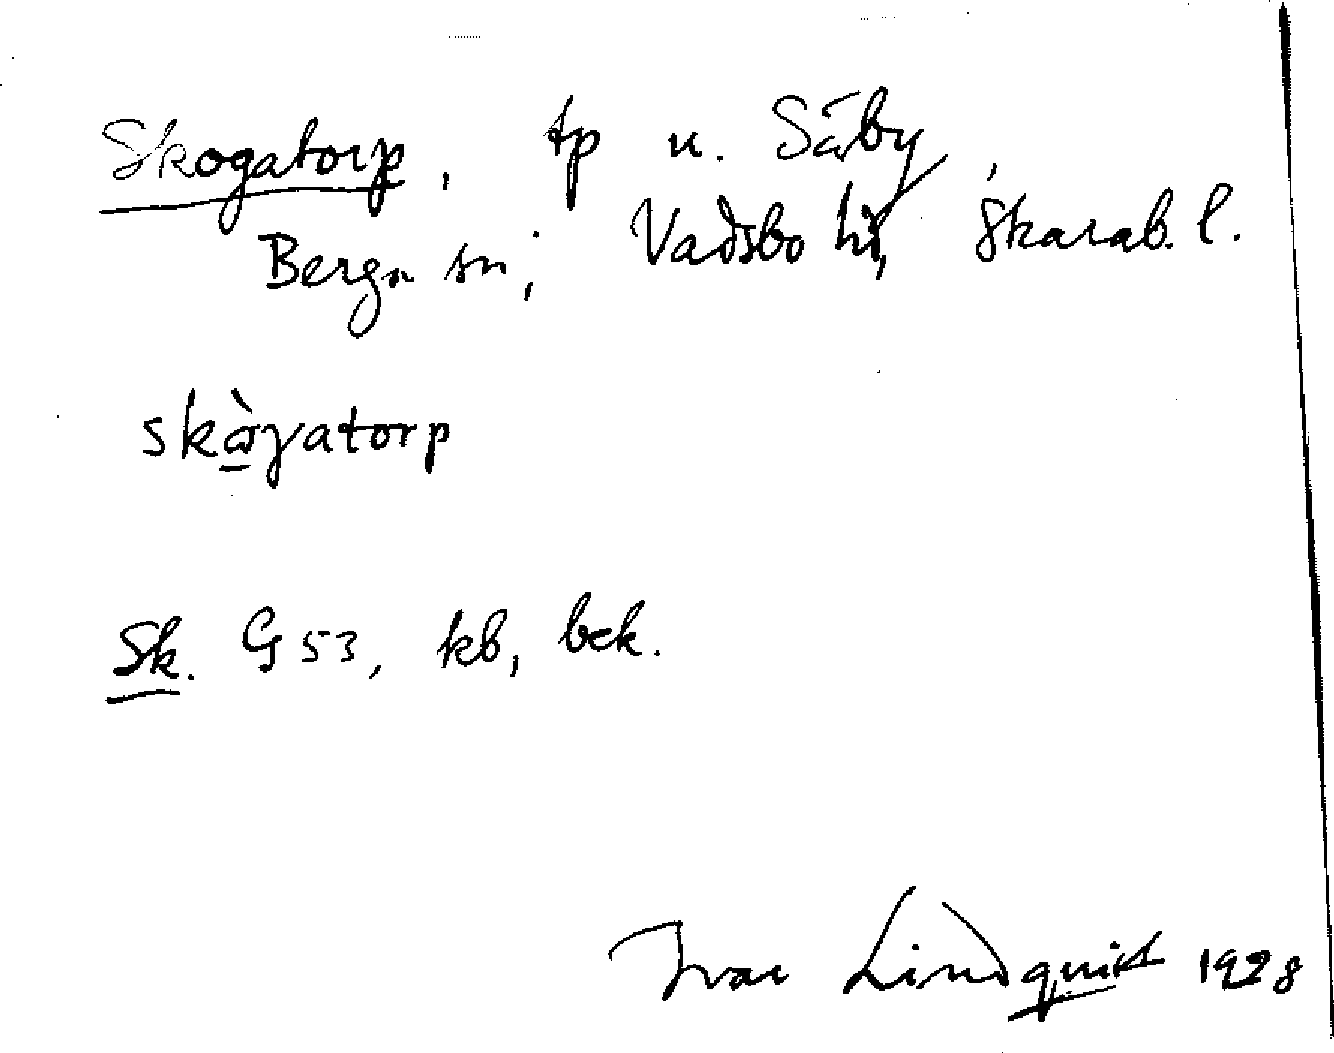 Skogatorp, tp u. Säby,
Bergs sn, Vadsbo hd, Skarab. l.
skàγatorp
Sk. G 53, kb, bek.
Ivar Lindquist 1928